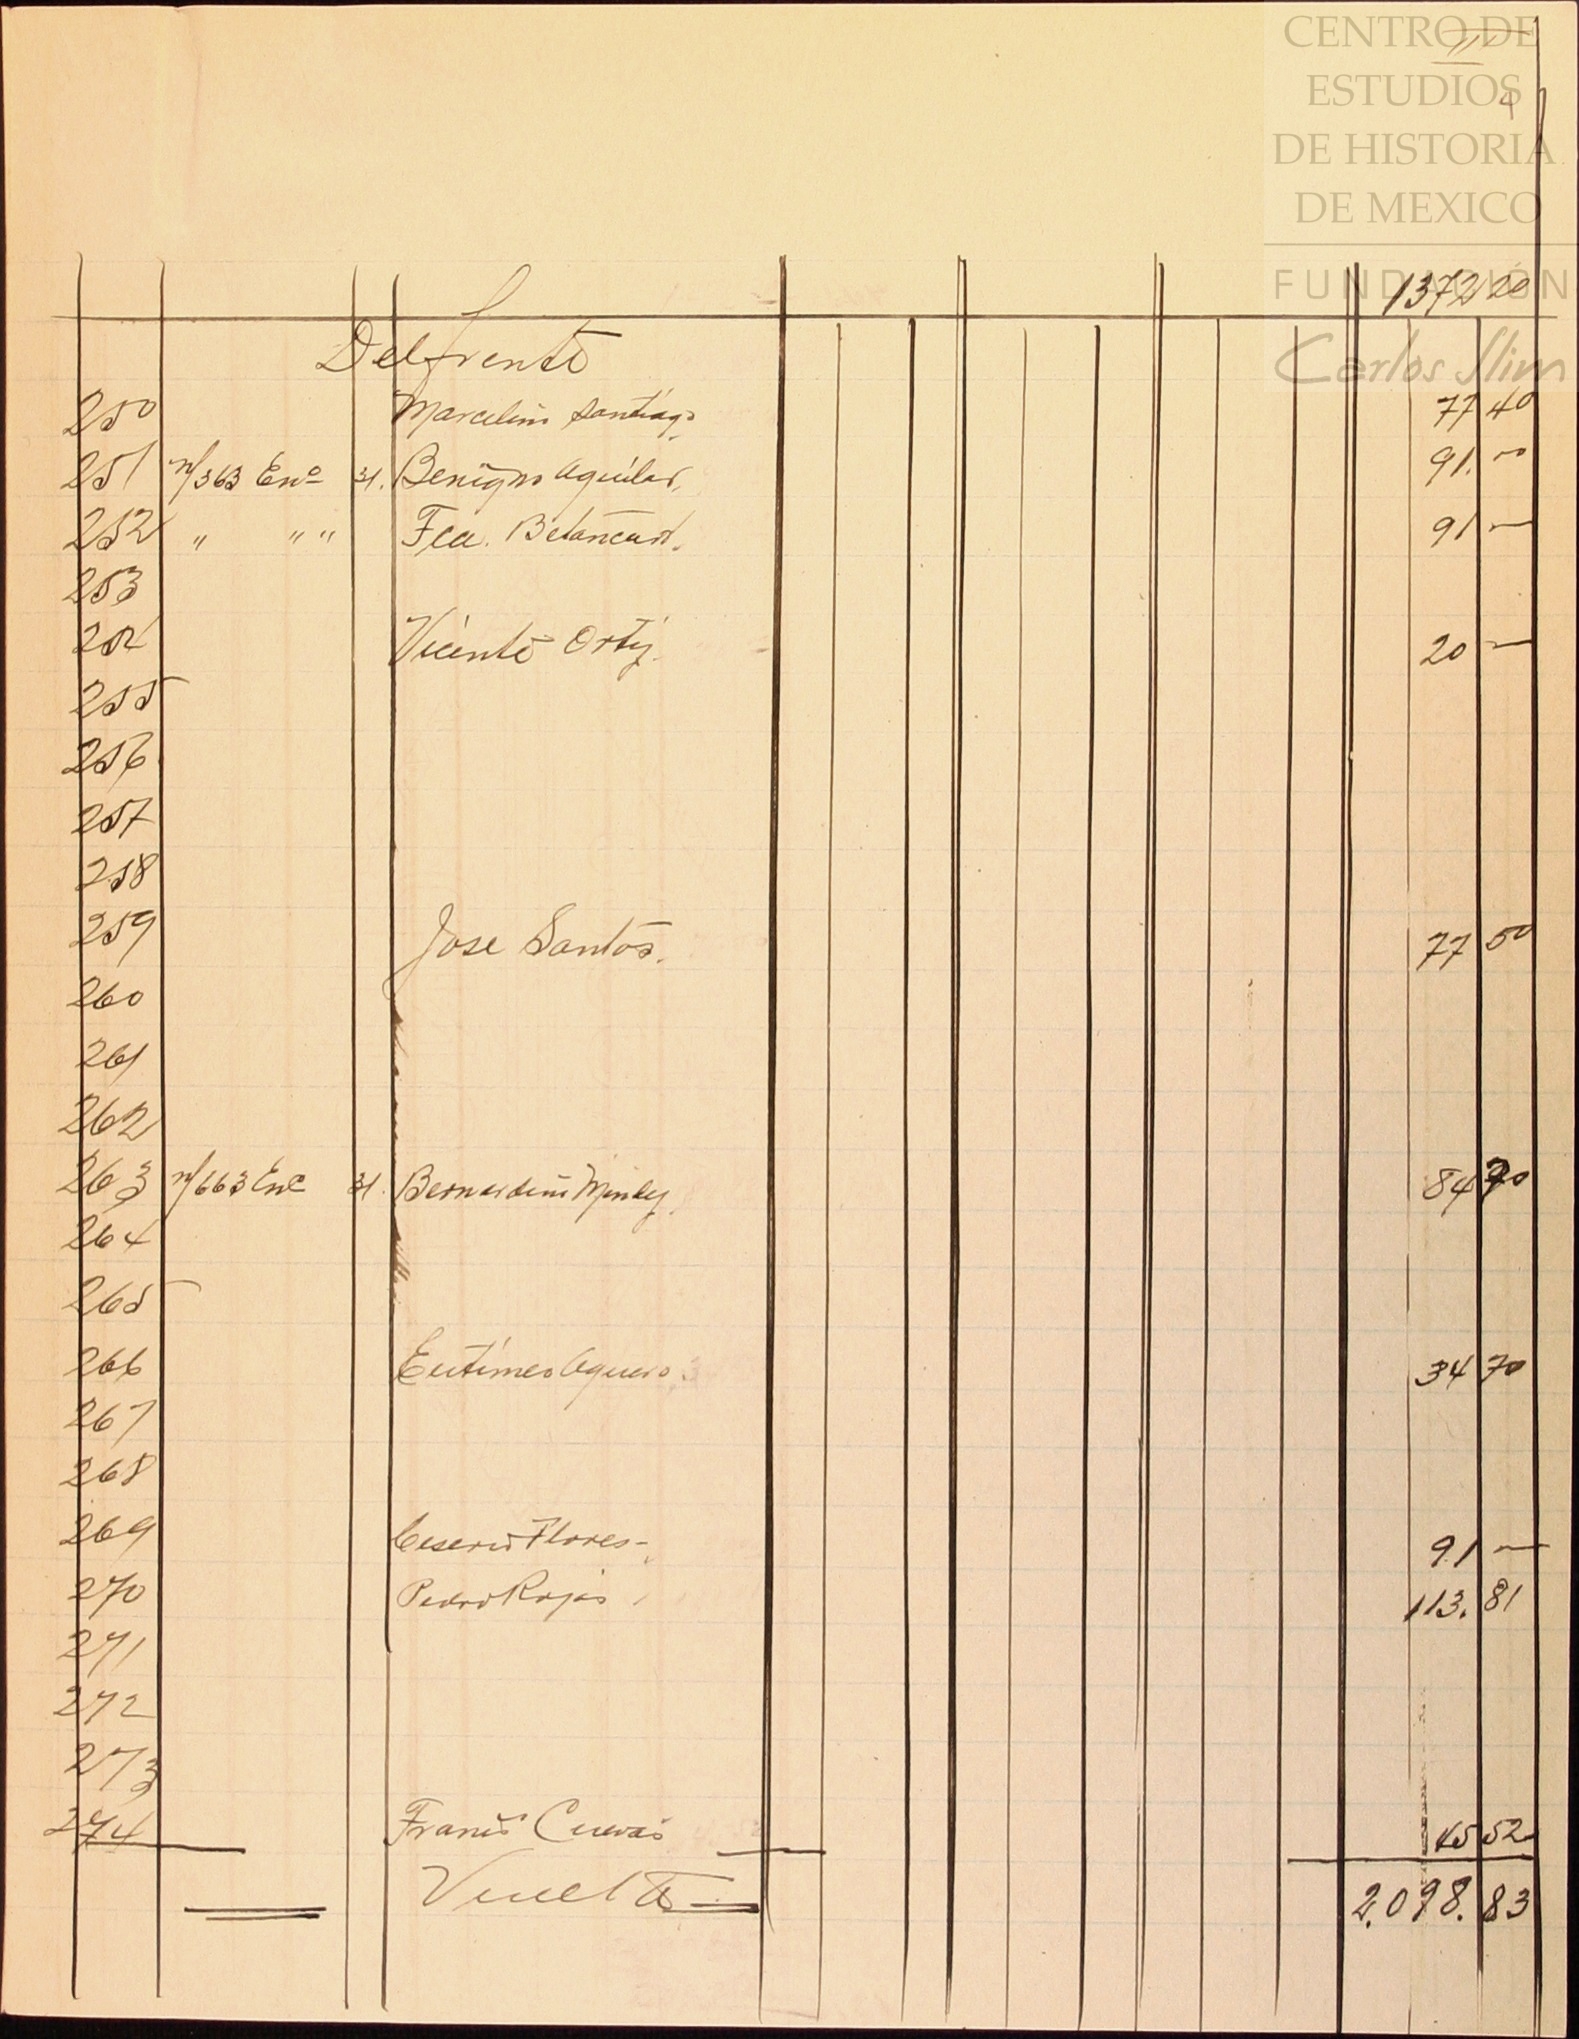 CENTRO DE
ESTUDIOS
4
DE HISTORIA
DE MEXICO
FUNDACIÓN
Carlos Slim
1372 20
Del frente
250 Marcelino Santiago 77 40
251 n/363 Eno 31. Benigno Aguilar. 91. —
252 " " " Fca. Betancurt. 91 —
253
254 Vicente Ortiz. 20 —
255
256
257
258
259 Jose Santos. 77 50
260
261
262
263 n/663 Eno 31. Bernardino 84 70
264
265
266 Eutimeo Aguero 34 70
267
268
269 Ceserio Flores - 91 —
270 Pedro Rojas 113. 81
271
272
273
274 Franco Cuevas 45 52
Vuelta 2.098. 83